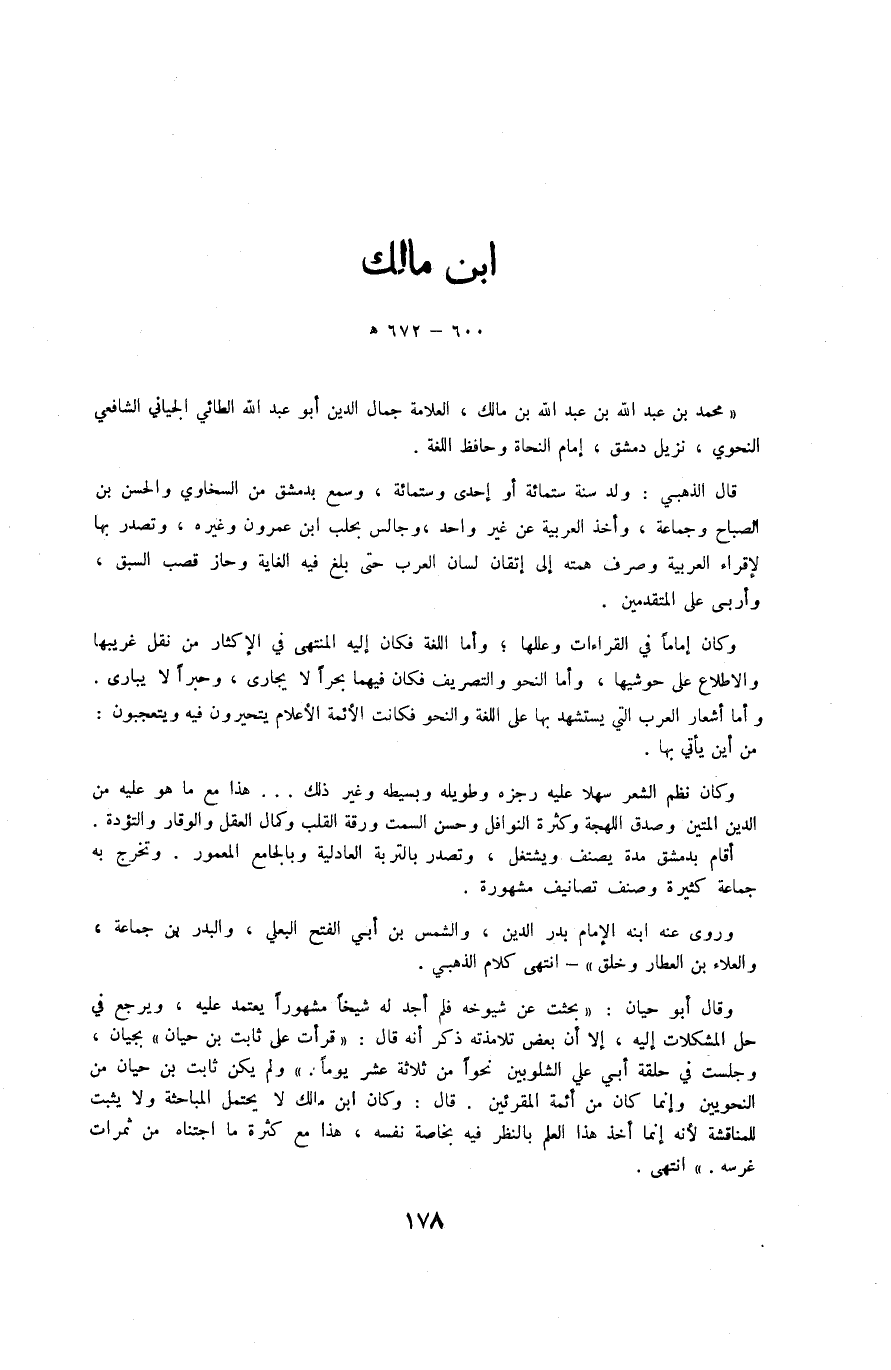 ابن مالك
٦٠٠ – ٦٧٢ ه
« محمد بن عبد الله بن عبد الله بن مالك ، العلامة جمال الدين أبو عبد الله الطائي الجياني الشافعي
النحوي ، نزيل دمشق ، إمام النحاة وحافظ اللغة .
قال الذهبي : ولد سنة ستمائة أو إحدى وستمائة ، وسمع بدمشق من السخاوي والحسن بن
الصباح وجماعة ، وأخذ العربية عن غير واحد ،وجالس بحلب ابن عمرون وغيره ، وتصدر بها
لإقراء العربية وصرف همته إلى إتقان لسان العرب حتى بلغ فيه الغاية وحاز قصب السبق ،
وأربى على المتقدمين .
وكان إماماً في القراءات وعللها ؛ وأما اللغة فكان إليه المنتهى في الإكثار من نقل غريبها
والاطلاع على حوشيها ، وأما النحو والتصريف فكان فيهما بحراً لا يجارى ، وحبراً لا يبارى .
وأما أشعار العرب التي يستشهد بها على اللغة والنحو فكانت الأئمة الأعلام يتحيرون فيه ويتعجبون :
من أين يأتي بها .
وكان نظم الشعر سهلا عليه رجزه وطويله وبسيطه وغير ذلك ... هذا مع ما هو عليه من
الدين المتين وصدق اللهجة وكثرة النوافل وحسن السمت ورقة القلب وكمال العقل والوقار والتؤدة .
أقام بدمشق مدة يصنف ويشتغل ، وتصدر بالتربة العادلية وبالجامع المعمور . وتخرج به
جماعة كثيرة وصنف تصانيف مشهورة .
وروى عنه ابنه الإمام بدر الدين ، والشمس بن أبي الفتح البعلي ، والبدر بن جماعة ،
والعلاء بن العطار وخلق » – انتهى كلام الذهبي .
وقال أبو حيان : « بحثت عن شيوخه فلم أجد له شيخاً مشهوراً يعتمد عليه ، ويرجع في
حل المشكلات إليه ، إلا أن بعض تلامذته ذكر أنه قال : « قرأت على ثابت بن حيان » بجيان ،
وجلست في حلقة أبي علي الشلوبين نحواً من ثلاثة عشر يوماً . » ولم يكن ثابت بن حيان من
النحويين وإنما كان من أئمة المقرئين . قال : وكان ابن مالك لا يحتمل المباحثة ولا يثبت
للمناقشة لأنه إنما أخذ هذا العلم بالنظر فيه بخاصة نفسه ، هذا مع كثرة ما اجتناه من ثمرات
غرسه . » انتهى .
١٧٨